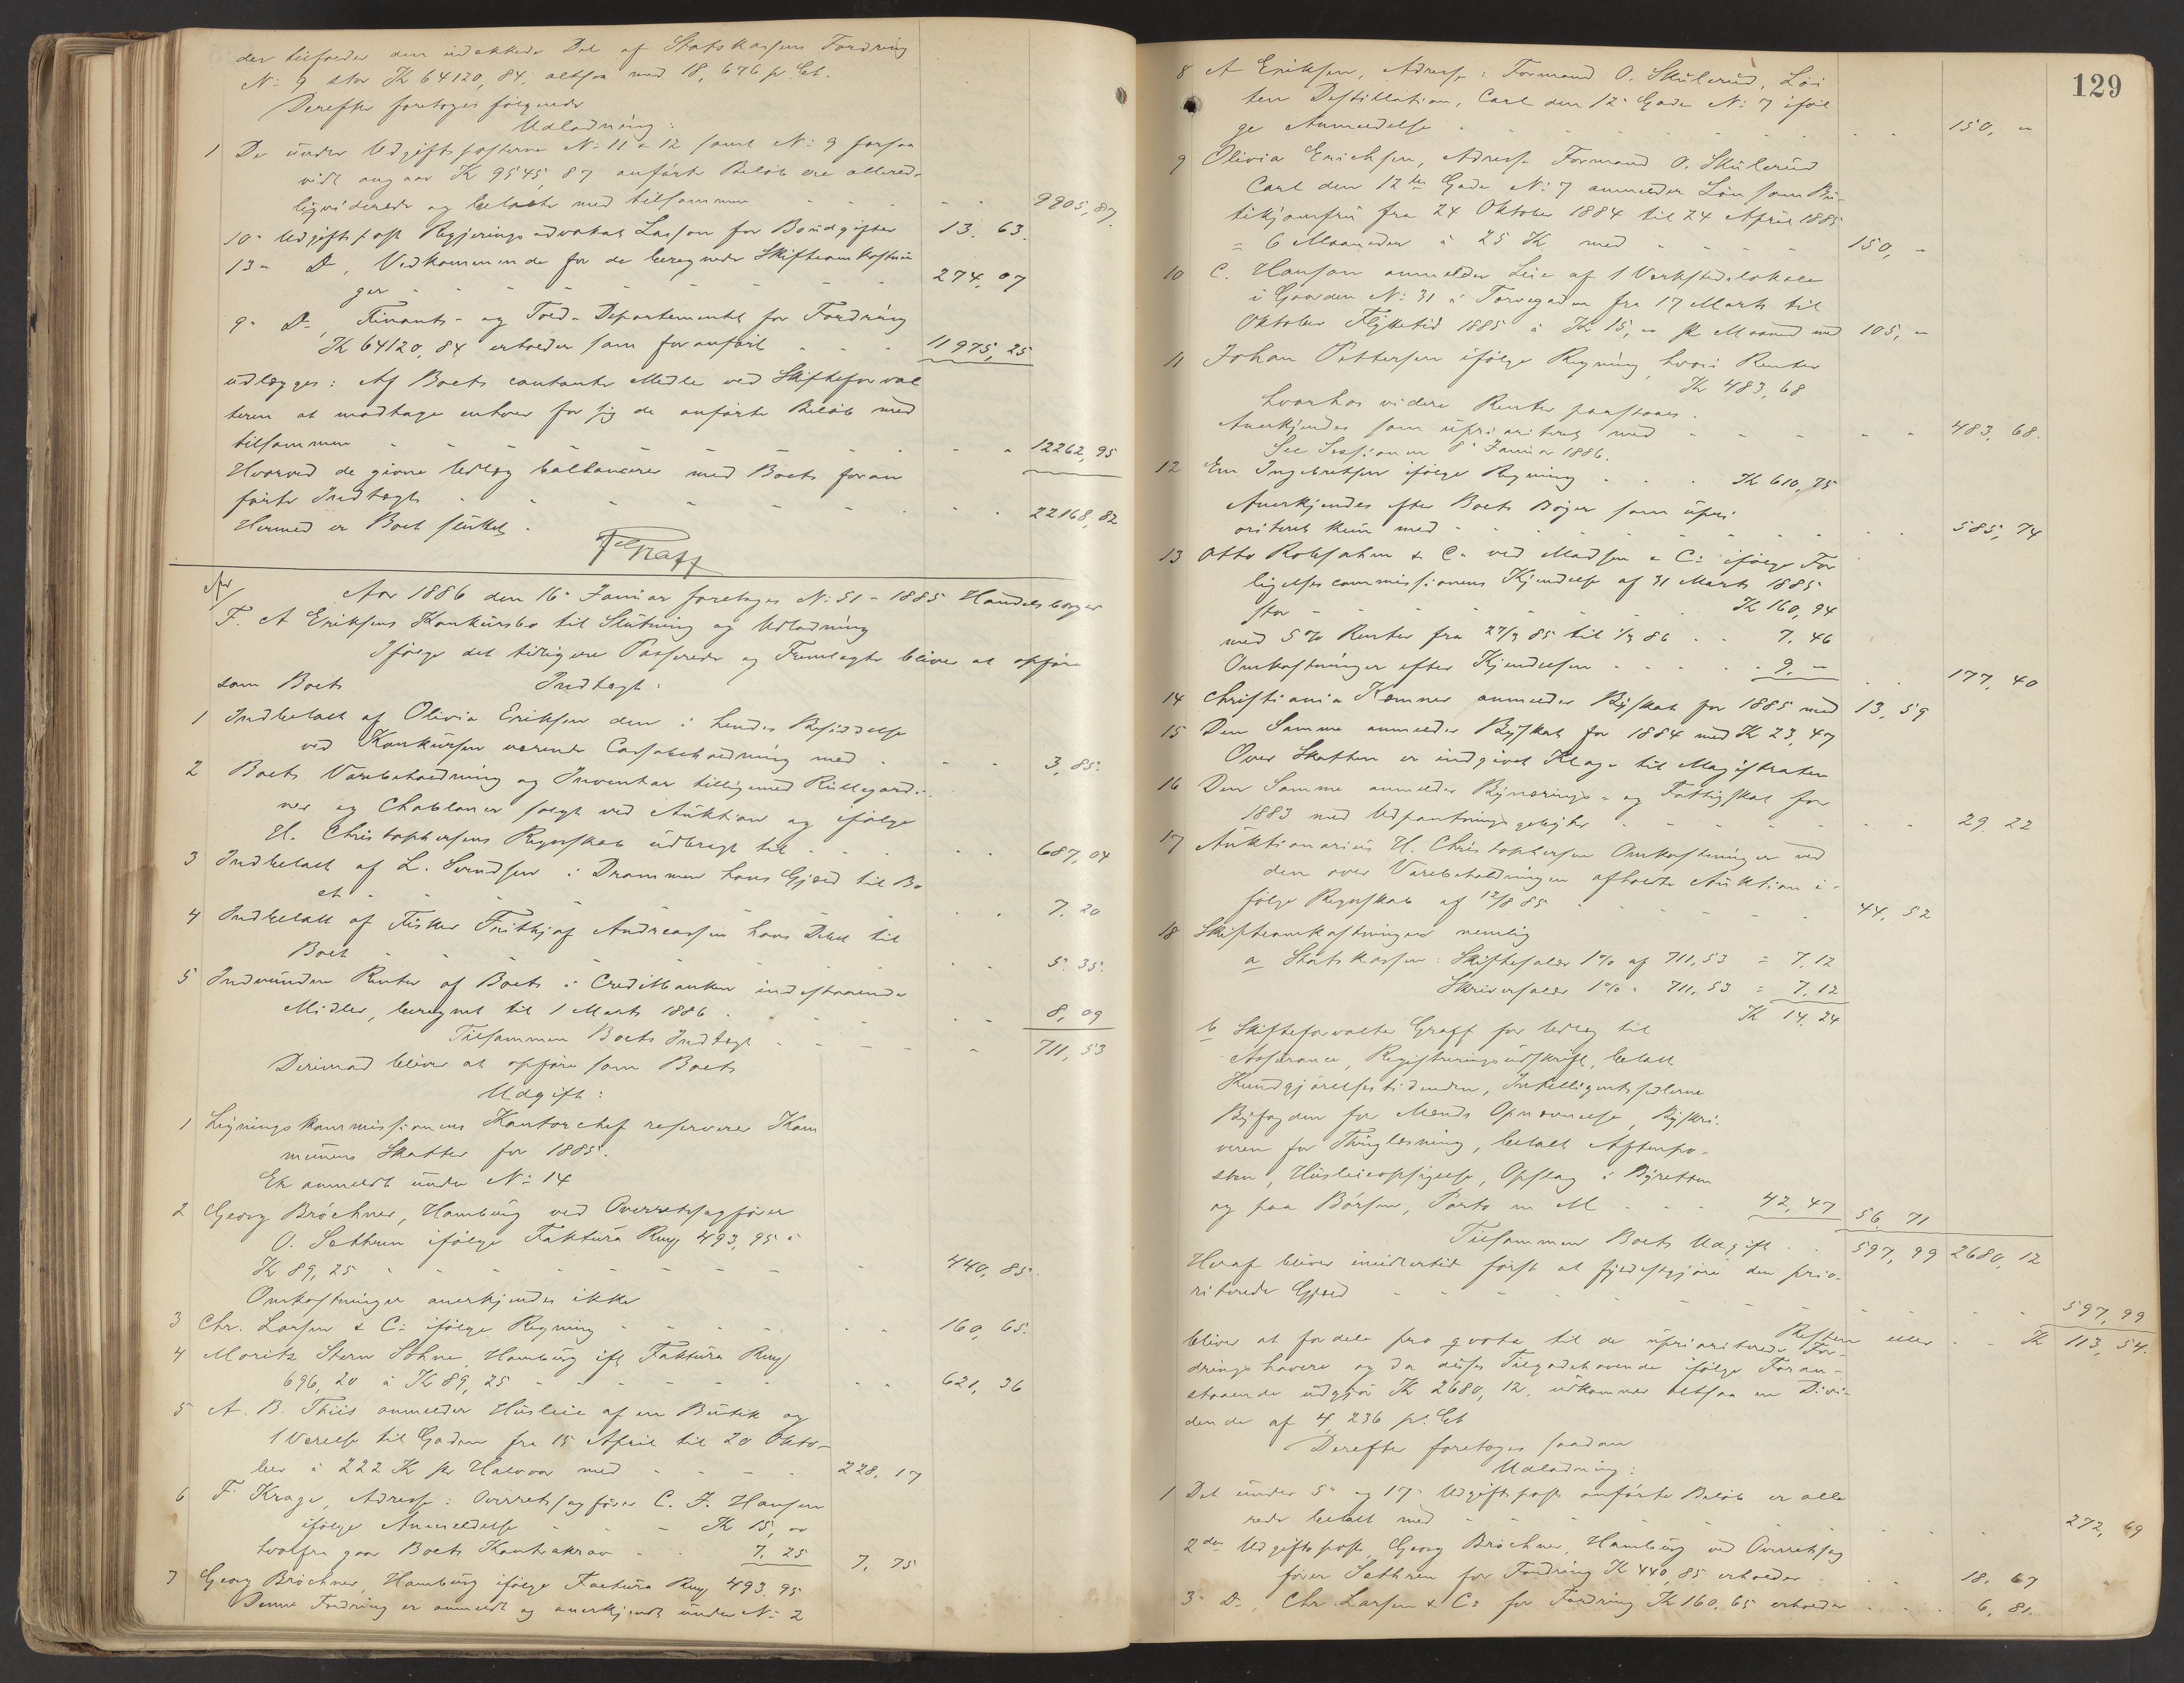 der tilfalder den udækkede Del af Statskassens Fordring
No 9 stor Kr 64120,84, altsaa med 18,676 pr. Ct.
Derefter foretages følgende
Udlodning:
1 De under Udgiftsposterne No 11 & 12 samt No 9 forsaa
vidt angaar Kr 9545,87 anførte Beløb ere allerede
ligviderede og betalte med tilsammen - - - 9905,87.
10- Udgiftspost Regjeringsadvokat Lasson for Boudgifter 13. 63.
13- Do, Vedkommende for de beregnede Skifteomkostnin
ger - - - - - - - 274,07
9- Do, Finants- og Told-Departementet for Fordring
Kr 64120,84 erholder som foranført - - - 11975,25
udlægges: Af Boets contante Midler ved Skifteforval
teren at modtage enhver for sig de anførte Beløb med
tilsammen - - - - - - - 12262,95
Hvorved de givne Udlæg ballancerer med Boets foran
førte Indtægt - - - - - - - 22168,82
Hermed er Boet sluttet.
Graff
Aar 1886 den 16- Januar foretages No 51-1885 Handelsborger
F. A Eriksens Konkursbo til Slutning og Udlodning
Ifølge det tidligere Passerede og Fremlagte bliver at opføre
som Boets Indtægt:
1 Indbetalt af Olivia Eriksen den i hendes Besiddelse
ved Konkursen værende Cassabeholdning med - - - 3,85.
2 Boets Varebeholdning og Inventar tilligemed Rullegardi-
ner og Chabloner solgt ved Auktion og ifølge
H. Christophersens Regnskab udbragt til - - - 687,04
3 Indbetalt af L. Svendsen i Drammen hans Gjæld til Bo
et - - - - - - - 7,20
4 Indbetalt af Fisker Frithjof Andreassen hans Debet til
Boet - - - - - - - 5,35.
5 Indvundne Renter af Boets i Creditbanken indestaaende
Midler, beregnet til 1 Marts 1886 - - - 8,09
Tilsammen Boets Indtægt - - - 711,53
Derimod bliver at opføre som Boets
Udgift:
1 Ligningskommissionens Kontorchef reserverer Kom
munens Skatter for 1885.
Er anmeldt under No 14
2 Georg Bröchner, Hamburg ved Overretssagfører
O. Sæthren ifølge Faktura Rmf 493,95 à
Kr 89,25 - - - - - - 440,85.
Omkostninger anerkjendes ikke
3 Chr. Larsen & Co ifølge Regning - - - 160,65.
4 Moritz Stern Söhne, Hamburg ifl Faktura Rmf
696,20 à Kr 89,25 - - - - - 621,36
5 A. B. Thiis anmelder Husleie af en Butik og
1 Værelse til Gaden fra 15 April til 20 Okto-
ber à 222 Kr pr Halvaar med - - - - 228,17
6 F. Krage, Adresse: Overretssagfører C. J. Hansen
ifølge Anmeldelse - - - Kr 15,00
hvorfra gaar Boets Kontrakrav - - 7.25 7,75
7 Georg Bröchner, Hamburg ifølge Factura Rmf 493,95
Denne Fordring er anmeldt og anerkjendt under No 2
129
8 A Eriksen, Adresse: Formand O. Skulerud, Løi
tens Destillation, Carl den 12- Gade No 7 iføl
ge Anmeldelse - - - - - - - 150,-
9 Olivia Erichsen, Adresse Formand O. Skulerud
Carl den 12tes Gade No 7 anmelder Løn som Bu-
tikjomfru fra 24 Oktober 1884 til 24 April 1885
= 6 Maaneder à 25 Kr med - - - - - 150,-
10 C. Hanson anmelder Leie af 1 Verkstedslokale
i Gaarden No 31 i Torvegaden fra 17 Marts til
Oktober Flyttetid 1885 à Kr 15,- pr Maaned med 105,-
11 Johan Pettersen ifølge Regning hvori Renter
Kr 483,68
hvorhos videre Renter paastaaes.
Anerkjendes som uprioriteret med - - - - 483,68.
See Sessionen 8- Januar 1886.
12 Em Ingebretsen ifølge Regning - - - Kr 610,75
Anerkjendes efter Boets Bøger som upri
oriteret kun med - - - - - - - 585,74
13 Otto Robsahm & Co ved Madsen & Co ifølge For
ligelsescommissionens Kjendelse af 31 Marts 1885
stor - - - - - - Kr 160,94
med 5% Renter fra 27/3 85 til 1/3 86 - - 7,46
Omkostninger efter Kjendelsen - - - - 9,- - - 177,40
14 Christiania Kæmner anmelder Byskat for 1885 med 13,59
15 Den Samme anmelder Byskat for 1884 med Kr 23,47
Over Skatten er indgivet Klage til Magistraten
16 Den Samme anmelder Bynærings- og Fattigskat for
1883 med Udpantningsgebyhr - - - - - 29,22
17 Auktionarius H. Christophersen Omkostninger ved
den over Varebeholdningen afholdte Auktion i-
følge Regnskab af 12/8 85 - - - - - 44,52
18 Skifteomkostninger nemlig
a Statskassen: Skiftesalær 1% af 711,53 = 7,12
Skriversalær 1% " 711,53 = 7,12
Kr 14,24
b Skifteforvalter Graff for Udlæg til
Assurance, Registreringsudskrift, betalt
Kundgjørelsestidenden, Intelligentssedlerne
Byfogden for Mænds Opnævnelse, Byskri-
veren for Thinglæsning, betalt Aftenpo-
sten, Husleieopsigelse, Opslag i Byretten
og paa Børsen, Porto m M - - - 42,47 56,71
Tilsammen Boets Udgift - - 597,99 2680,12
Heraf bliver imidlertid først at fyldestgjøre den prio-
riterede Gjæld - - - - - - - 597,99
Resten eller - - Kr 113,54.
bliver at fordele pro qvota til de uprioriterede For-
dringshavere og da disses Tilgodehavende ifølge Foran-
staaende udgjør Kr 2680,12, udkommer altsaa en Divi-
dende af 4,236 pr. Ct
Derefter foretages saadan
Udlodning:
1 Det under 5- og 17- Udgiftspost anførte Beløb er alle
rede betalt med - - - - - - - 272,69
2den Udgiftspost, Georg Bröchner, Hamburg ved Overretssag
fører Sæthren for Fordring Kr 440,85 erholder - - - 18,67
3- Do, Chr. Larsen & Co for Fordring Kr 160,65 erholder - - - 6,81.